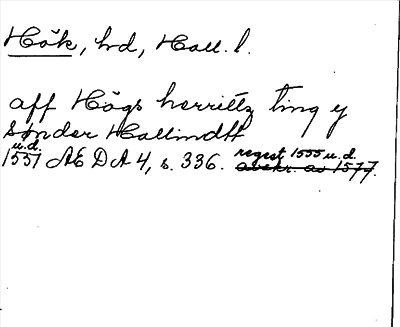 Hök, hd, Hall. l.
aff Högs herrittz ting y
Sønder Hallindtt
u.d.
1551 ÆDA 4, s. 336. regest 1555 u.d.
avskr. av 1577.